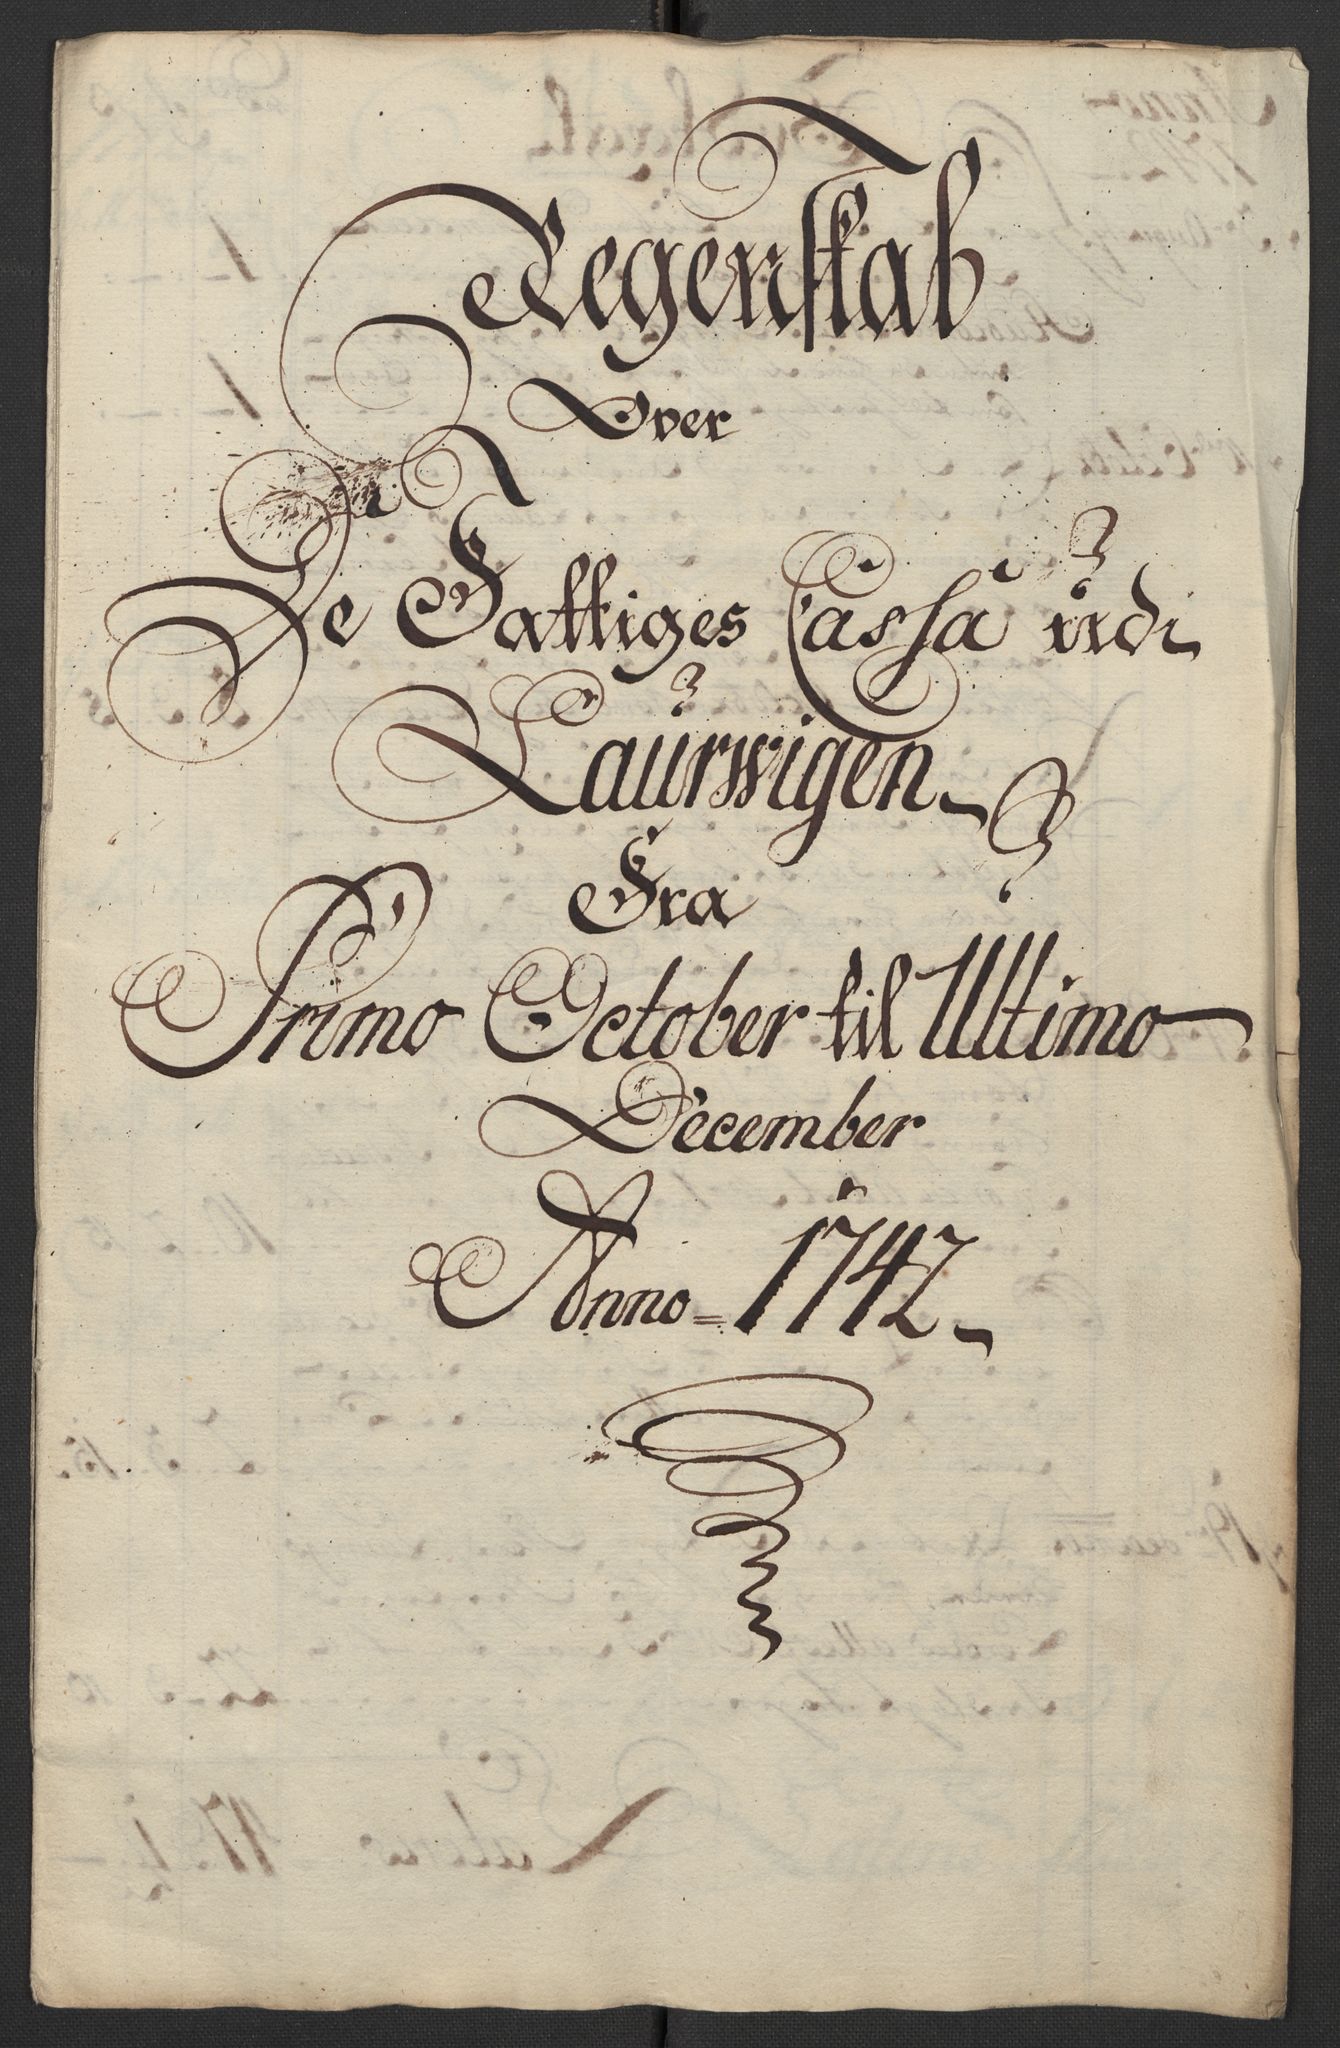 Regenskab
Over
De Fattiges Cassa udi
Laurwigen
Fra
Primo October til Ultimo
December
Anno = 1742